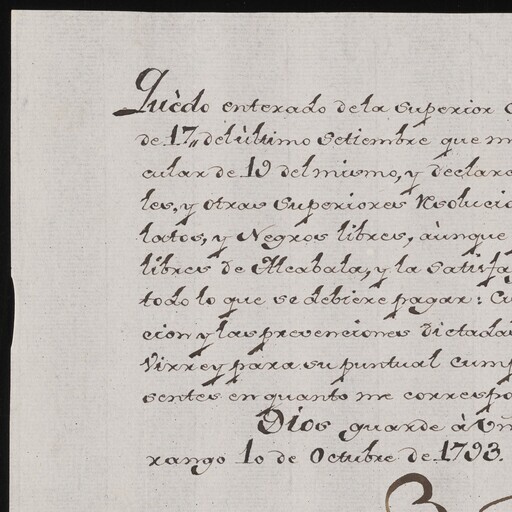 Quèdo enterado de la superior
de 17,, del ùltimo Setiembre que m
cular de 19 del mismo, y declara
les, y otras superiores Resolucio
latos, y Negros libres, aùnque
libres de Alcabala, y la satisfa
todo lo que se debiere pagar: Cu
cion y las prevenciones dictada
Virrey para su puntual cump
sentes en quanto me correspo
Dios guarde à Vm
rango 10 de Octubre de 1793.